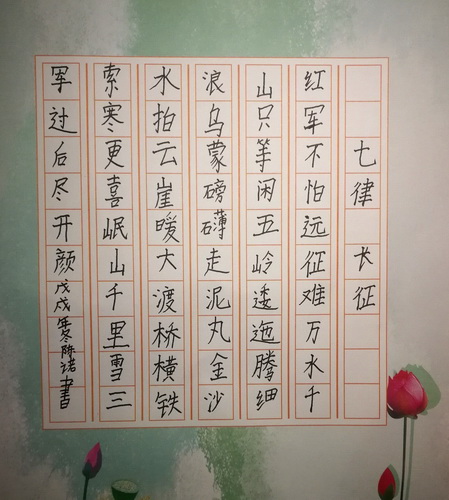 七律 长征
红军不怕远征难万水千
山只等闲五岭逶迤腾细
浪乌蒙磅礴走泥丸金沙
水拍云崖暖大渡桥横铁
索寒更喜岷山千里雪三
军过后尽开颜戊戌年冬陈诺书